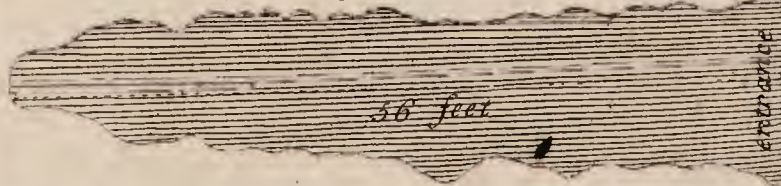 56 feet
entrance